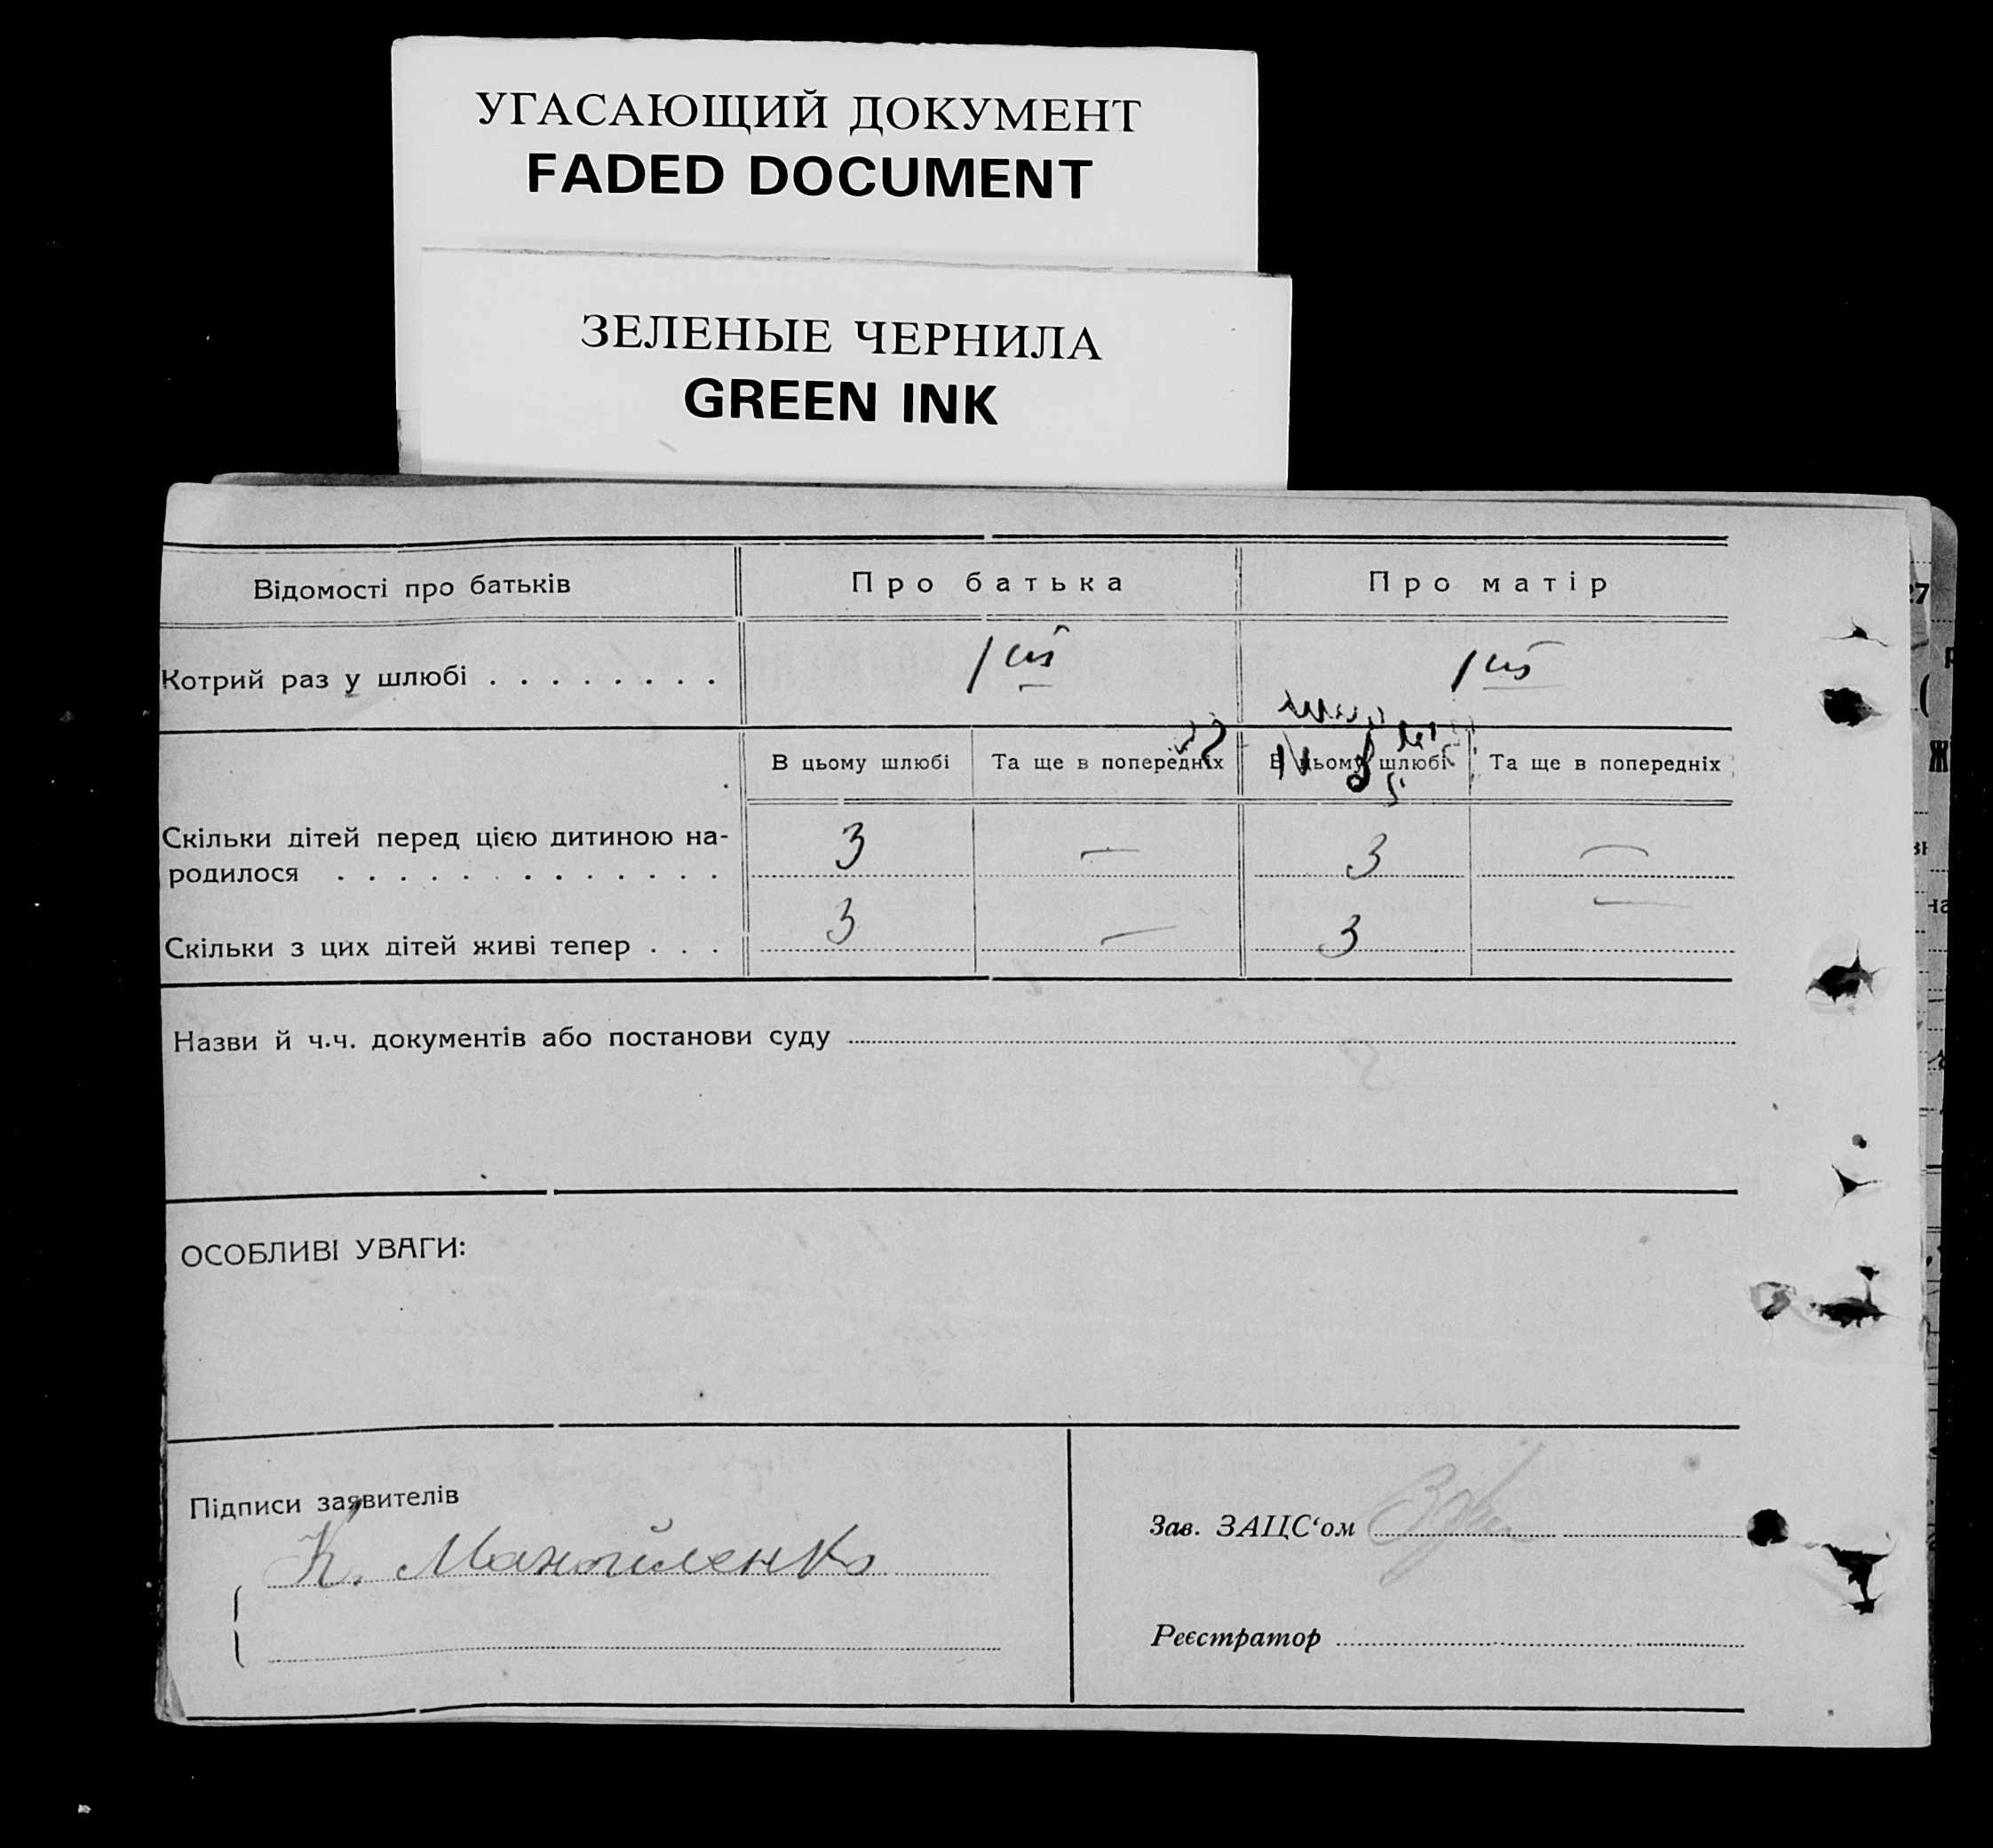 УГАСАЮЩИЙ ДОКУМЕНТ
FADED DOCUMENT
ЗЕЛЕНЫЕ ЧЕРНИЛА
GREEN INK
Відомості про батьків Про батька Про матір
Котрий раз у шлюбі . . . . . . . . 1 ий 1 ий
В цьому шлюбі Та ще в попередніх В цьому шлюбі Та ще в попередніх
Скільки дітей перед цією дитиною на-
родилося . . . . . . . . . . . . . 3 — 3 —
Скільки з цих дітей живі тепер . . . 3 — 3 —
Назви й ч.ч. документів або постанови суду
ОСОБЛИВІ УВАГИ:
Підписи заявителів
К. Манойленко
Зав. ЗАЦС‘ом
Реєстратор